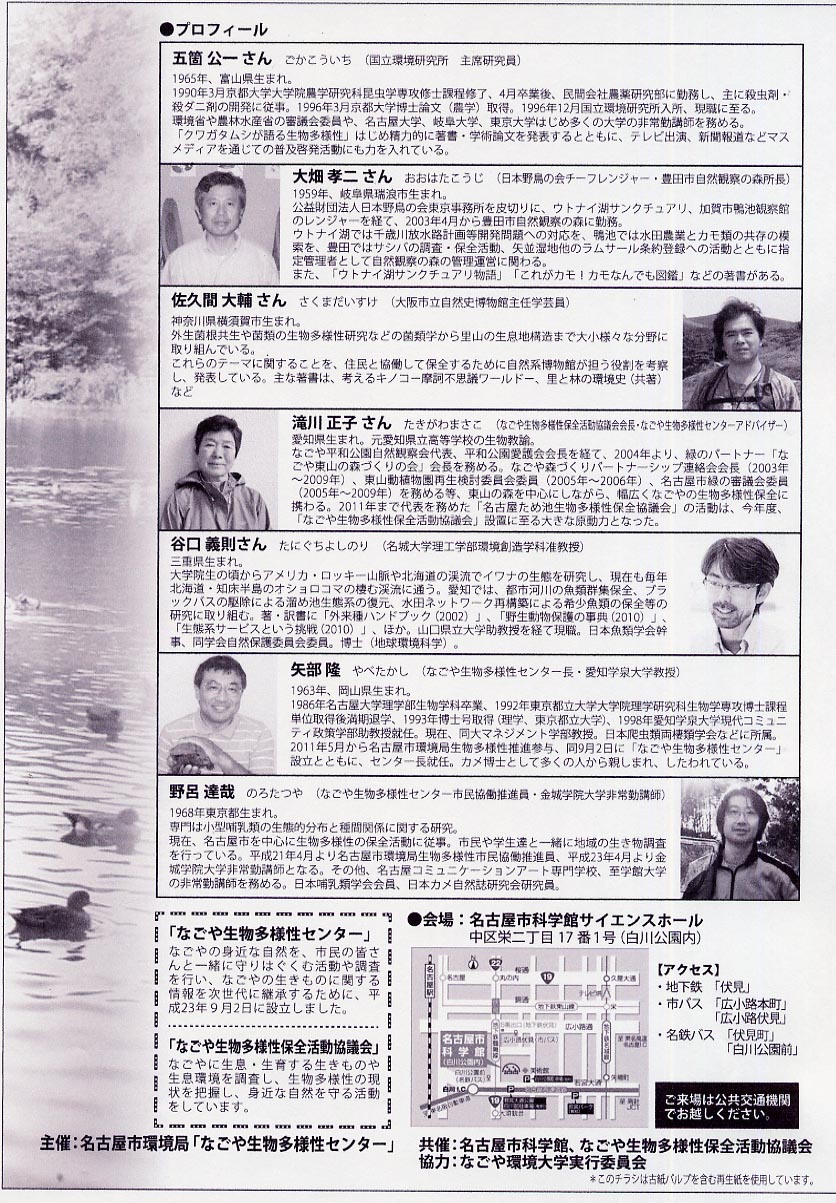 ●プロフィール
五箇 公一 さん　ごかこういち　（国立環境研究所　主席研究員）
1965年、富山県生まれ。
1990年3月京都大学大学院農学研究科昆虫学専攻修士課程修了、4月卒業後、民間会社農薬研究部に勤務し、主に殺虫剤・
殺ダニ剤の開発に従事。1996年3月京都大学博士論文（農学）取得。1996年12月国立環境研究所入所、現職に至る。
環境省や農林水産省の審議会委員や、名古屋大学、岐阜大学、東京大学はじめ多くの大学の非常勤講師を務める。
「クワガタムシが語る生物多様性」はじめ精力的に著書・学術論文を発表するとともに、テレビ出演、新聞報道などマス
メディアを通じての普及啓発活動にも力を入れている。
大畑 孝二 さん　おおはたこうじ　（日本野鳥の会チーフレンジャー・豊田市自然観察の森所長）
1959年、岐阜県瑞浪市生まれ。
公益財団法人日本野鳥の会東京事務所を皮切りに、ウトナイ湖サンクチュアリ、加賀市鴨池観察館
のレンジャーを経て、2003年4月から豊田市自然観察の森に勤務。
ウトナイ湖では千歳川放水路計画等開発問題への対応を、鴨池では水田農業とカモ類の共存の模
索を、豊田ではサシバの調査・保全活動、矢並湿地他のラムサール条約登録への活動とともに指
定管理者として自然観察の森の管理運営に関わる。
また、「ウトナイ湖サンクチュアリ物語」「これがカモ！カモなんでも図鑑」などの著書がある。
佐久間 大輔 さん　さくまだいすけ　（大阪市立自然史博物館主任学芸員）
神奈川県横須賀市生まれ。
外生菌根共生や菌類の生物多様性研究などの菌類学から里山の生息地構造まで大小様々な分野に
取り組んでいる。
これらのテーマに関することを、住民と協働して保全するために自然系博物館が担う役割を考察
し、発表している。主な著書は、考えるキノコー摩訶不思議ワールドー、里と林の環境史（共著）
など
滝川 正子 さん　たきがわまさこ　（なごや生物多様性保全活動協議会会長・なごや生物多様性センターアドバイザー）
愛知県生まれ。元愛知県立高等学校の生物教諭。
なごや平和公園自然観察会代表、平和公園愛護会会長を経て、2004年より、緑のパートナー「な
ごや東山の森づくりの会」会長を務める。なごや森づくりパートナーシップ連絡会会長（2003年
～2009年）、東山動植物園再生検討委員会委員（2005年～2006年）、名古屋市緑の審議会委員
（2005年～2009年）を務める等、東山の森を中心にしながら、幅広くなごやの生物多様性保全に
携わる。2011年まで代表を務めた「名古屋ため池生物多様性保全協議会」の活動は、今年度、
「なごや生物多様性保全活動協議会」設置に至る大きな原動力となった。
谷口 義則さん　たにぐちよしのり　（名城大学理工学部環境創造学科准教授）
三重県生まれ。
大学院生の頃からアメリカ・ロッキー山脈や北海道の渓流でイワナの生態を研究し、現在も毎年
北海道・知床半島のオショロコマの棲む渓流に通う。愛知では、都市河川の魚類群集保全、ブラ
ックバスの駆除による溜め池生態系の復元、水田ネットワーク再構築による希少魚類の保全等の
研究に取り組む。著・訳書に「外来種ハンドブック（2002）」、「野生動物保護の事典（2010）」、
「生態系サービスという挑戦（2010）」、ほか。山口県立大学助教授を経て現職。日本魚類学会幹
事、同学会自然保護委員会委員。博士（地球環境科学）。
矢部 隆　やべたかし　（なごや生物多様性センター長・愛知学泉大学教授）
1963年、岡山県生まれ。
1986年名古屋大学理学部生物学科卒業、1992年東京都立大学大学院理学研究科生物学専攻博士課程
単位取得後満期退学、1993年博士号取得（理学、東京都立大学）、1998年愛知学泉大学現代コミュニ
ティ政策学部助教授就任。現在、同大マネジメント学部教授。日本爬虫類両棲類学会などに所属。
2011年5月から名古屋市環境局生物多様性推進参与、同9月2日に「なごや生物多様性センター」
設立とともに、センター長就任。カメ博士として多くの人から親しまれ、したわれている。
野呂 達哉　のろたつや　（なごや生物多様性センター市民協働推進員・金城学院大学非常勤講師）
1968年東京都生まれ。
専門は小型哺乳類の生態的分布と種間関係に関する研究。
現在、名古屋市を中心に生物多様性の保全活動に従事。市民や学生達と一緒に地域の生き物調査
を行っている。平成21年4月より名古屋市環境局生物多様性市民協働推進員、平成23年4月より金
城学院大学非常勤講師となる。その他、名古屋コミュニケーションアート専門学校、至学館大学
の非常勤講師を務める。日本哺乳類学会会員、日本カメ自然誌研究会研究員。
「なごや生物多様性センター」
なごやの身近な自然を、市民の皆さ
んと一緒に守りはぐくむ活動や調査
を行い、なごやの生きものに関する
情報を次世代に継承するために、平
成23年9月2日に設立しました。
「なごや生物多様性保全活動協議会」
なごやに生息・生育する生きものや
生息環境を調査し、生物多様性の現
状を把握し、身近な自然を守る活動
をしています。
●会場：名古屋市科学館サイエンスホール
中区栄二丁目17番1号（白川公園内）
名古屋駅
名古屋
22
丸の内
桜通
19
久屋大通
テレビ塔
錦通
地下鉄東山線
栄
広小路通
広小路伏見（市バス）
名古屋市
科学館
（白川公園内）
白川公園前
（名鉄バス）
美術館
若宮大通
矢場町
白川I.C
大須観音
【アクセス】
・地下鉄　「伏見」
・市バス　「広小路本町」
「広小路伏見」
・名鉄バス　「伏見町」
「白川公園前」
ご来場は公共交通機関
でお越しください。
主催：名古屋市環境局「なごや生物多様性センター」
共催：名古屋市科学館、なごや生物多様性保全活動協議会
協力：なごや環境大学実行委員会
＊このチラシは古紙パルプを含む再生紙を使用しています。